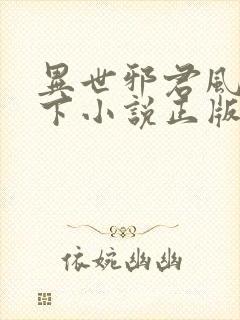 異世邪君風
下小說正版
依婉幽幽